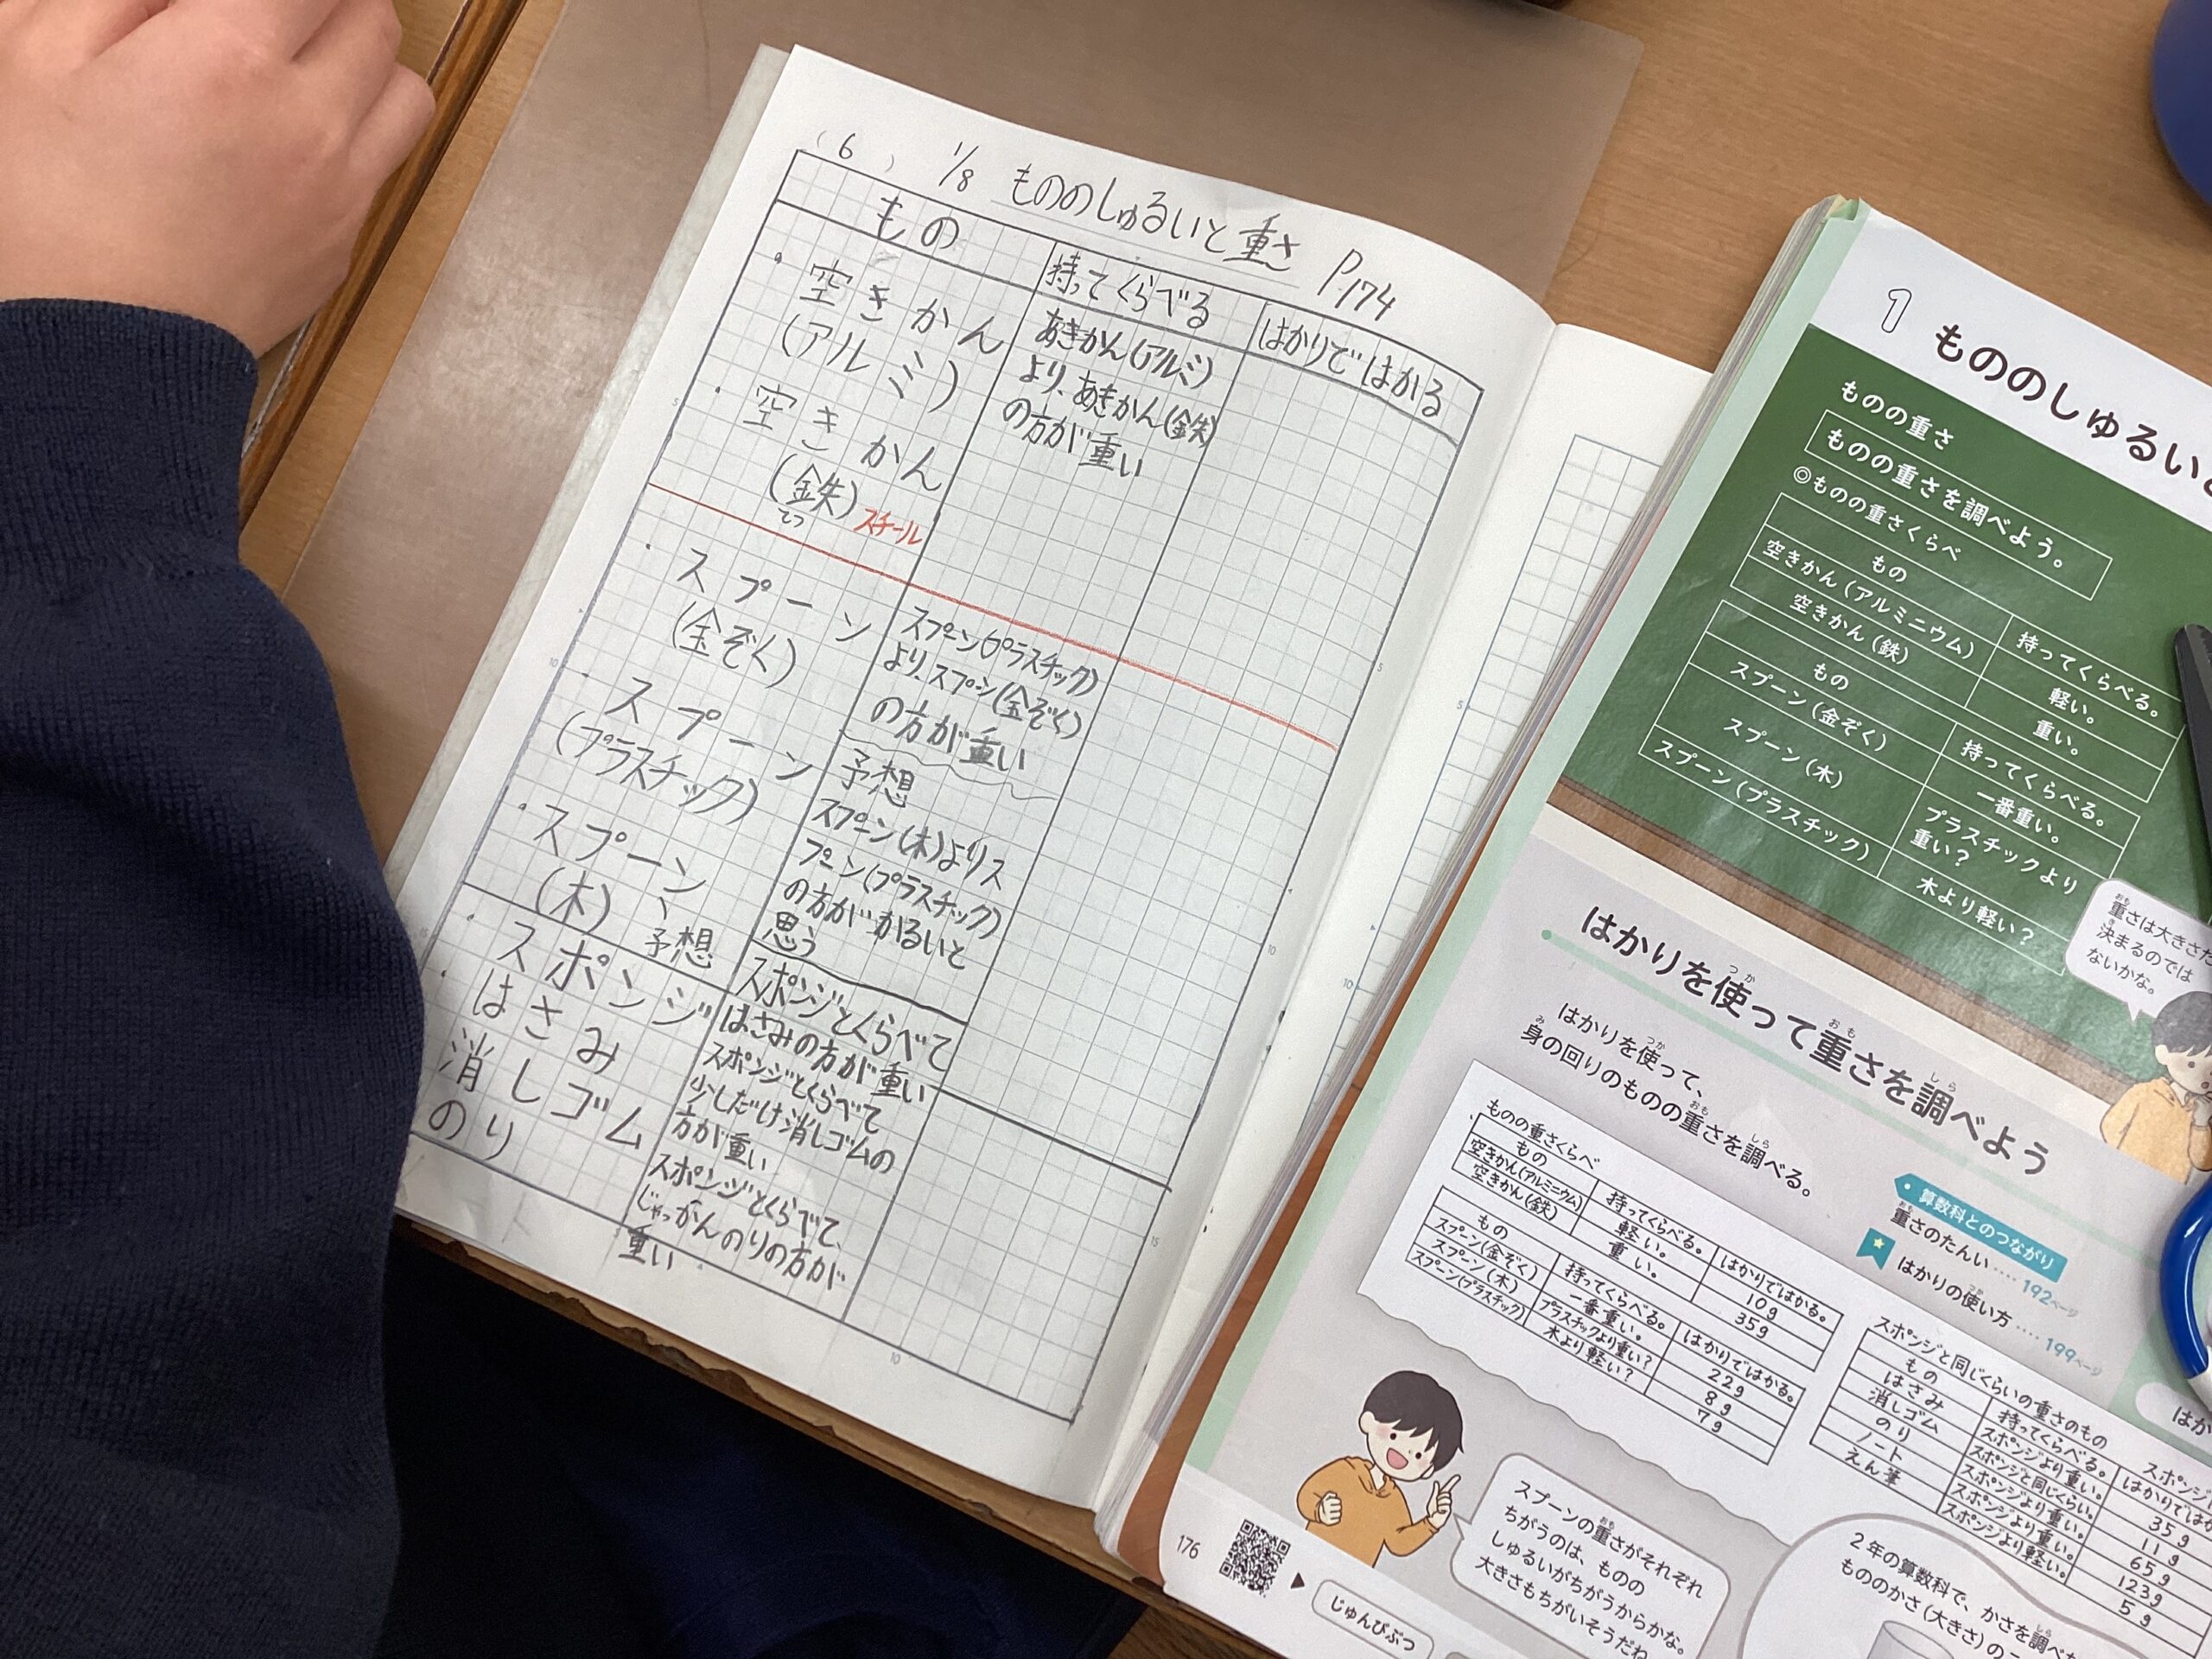 (6) 1/8 もののしゅるいと重さ P.174
もの
持ってくらべる
はかりではかる
・空きかん
(アルミ)
・空きかん
(鉄)スチール
てつ
あきかん(アルミ)
より、あきかん(鉄)
の方が重い
・スプーン
(金ぞく)
・スプーン
(プラスチック)
・スプーン
(木)
予想
スプーン(プラスチック)
より、スプーン(金ぞく)
の方が重い
予想
スプーン(木)よりス
プーン(プラスチック)
の方がかるいと
思う
・スポンジ
・はさみ
消しゴム
のり
スポンジとくらべて
はさみの方が重い
スポンジとくらべて
少しだけ消しゴムの
方が重い
スポンジとくらべて、
じゃっかんのりの方が
重い
1 もののしゅるい
ものの重さ
ものの重さを調べよう。
◎ものの重さくらべ
もの 持ってくらべる。
空きかん(アルミニウム) 軽い。
空きかん(鉄) 重い。
もの 持ってくらべる。
スプーン(金ぞく) 一番重い。
スプーン(木) プラスチックより
重い?
スプーン(プラスチック) 木より軽い?
重さは大きさだ
決まるのでは
ないかな。
はかりを使って重さを調べよう
はかりを使って、
身の回りのものの重さを調べる。
算数科とのつながり
重さのたんい‥‥192ページ
はかりの使い方‥‥199ページ
ものの重さくらべ
もの 持ってくらべる。 はかりではかる。
空きかん(アルミニウム) 軽い。 10g
空きかん(鉄) 重い。 35g
もの 持ってくらべる。 はかりではかる。
スプーン(金ぞく) 一番重い。 22g
スプーン(木) プラスチックより重い? 8g
スプーン(プラスチック) 木より軽い? 7g
スポンジと同じくらいの重さのもの
スポンジ
もの 持ってくらべる。 はかりではか
はさみ スポンジより重い。 35g
消しゴム スポンジと同じくらい。 11g
のり スポンジより重い。 65g
ノート スポンジより重い。 123g
えん筆 スポンジより軽い。 5g
はか
スプーンの重さがそれぞれ
ちがうのは、ものの
しゅるいがちがうからかな。
大きさもちがいそうだね
2年の算数科で、かさを調べ
もののかさ(大きさ)の
176
じゅんびぶつ